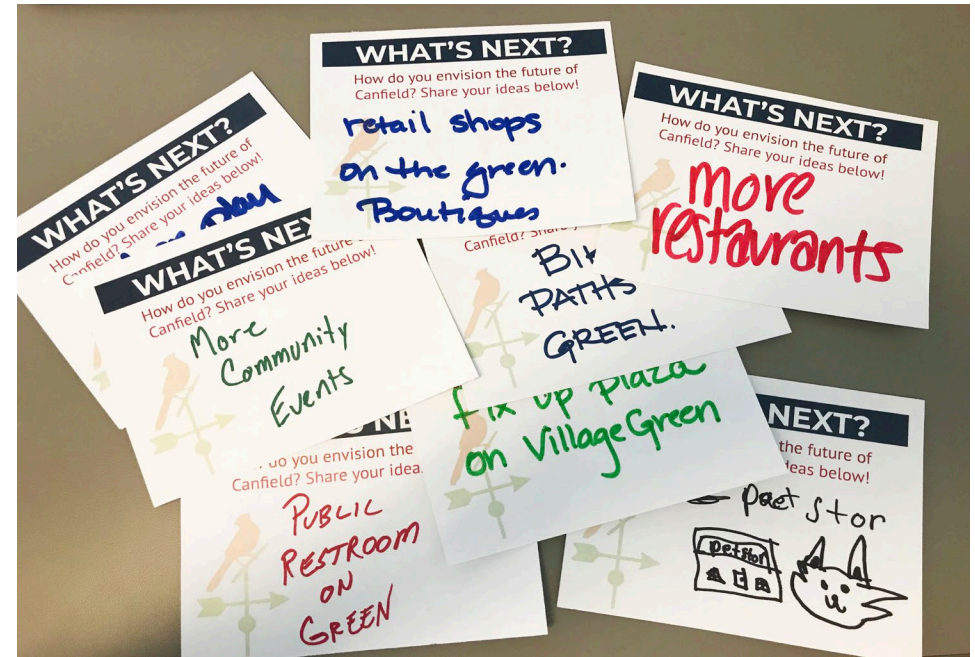 WHAT'S NEXT?
How do you envision the future of
Canfield? Share your ideas below!
retail shops
on the green.
Boutiques
WHAT'S NEXT?
How do you envision the future of
Canfield? Share your ideas below!
more
restaurants
WHAT'S NEXT?
How do you envision the future of
Canfield? Share your ideas below!
WHAT'S NE
How do you envision the future
Canfield? Share your ideas below!
More
Community
Events
Canfield?
PATHS
GREEN.
fix up plaza
on Village Green
NE
do you envision the
Canfield? Share your idea
PUBLIC
RESTROOM
ON
GREEN
NEXT?
the future of
ideas below!
paet stor
petstor